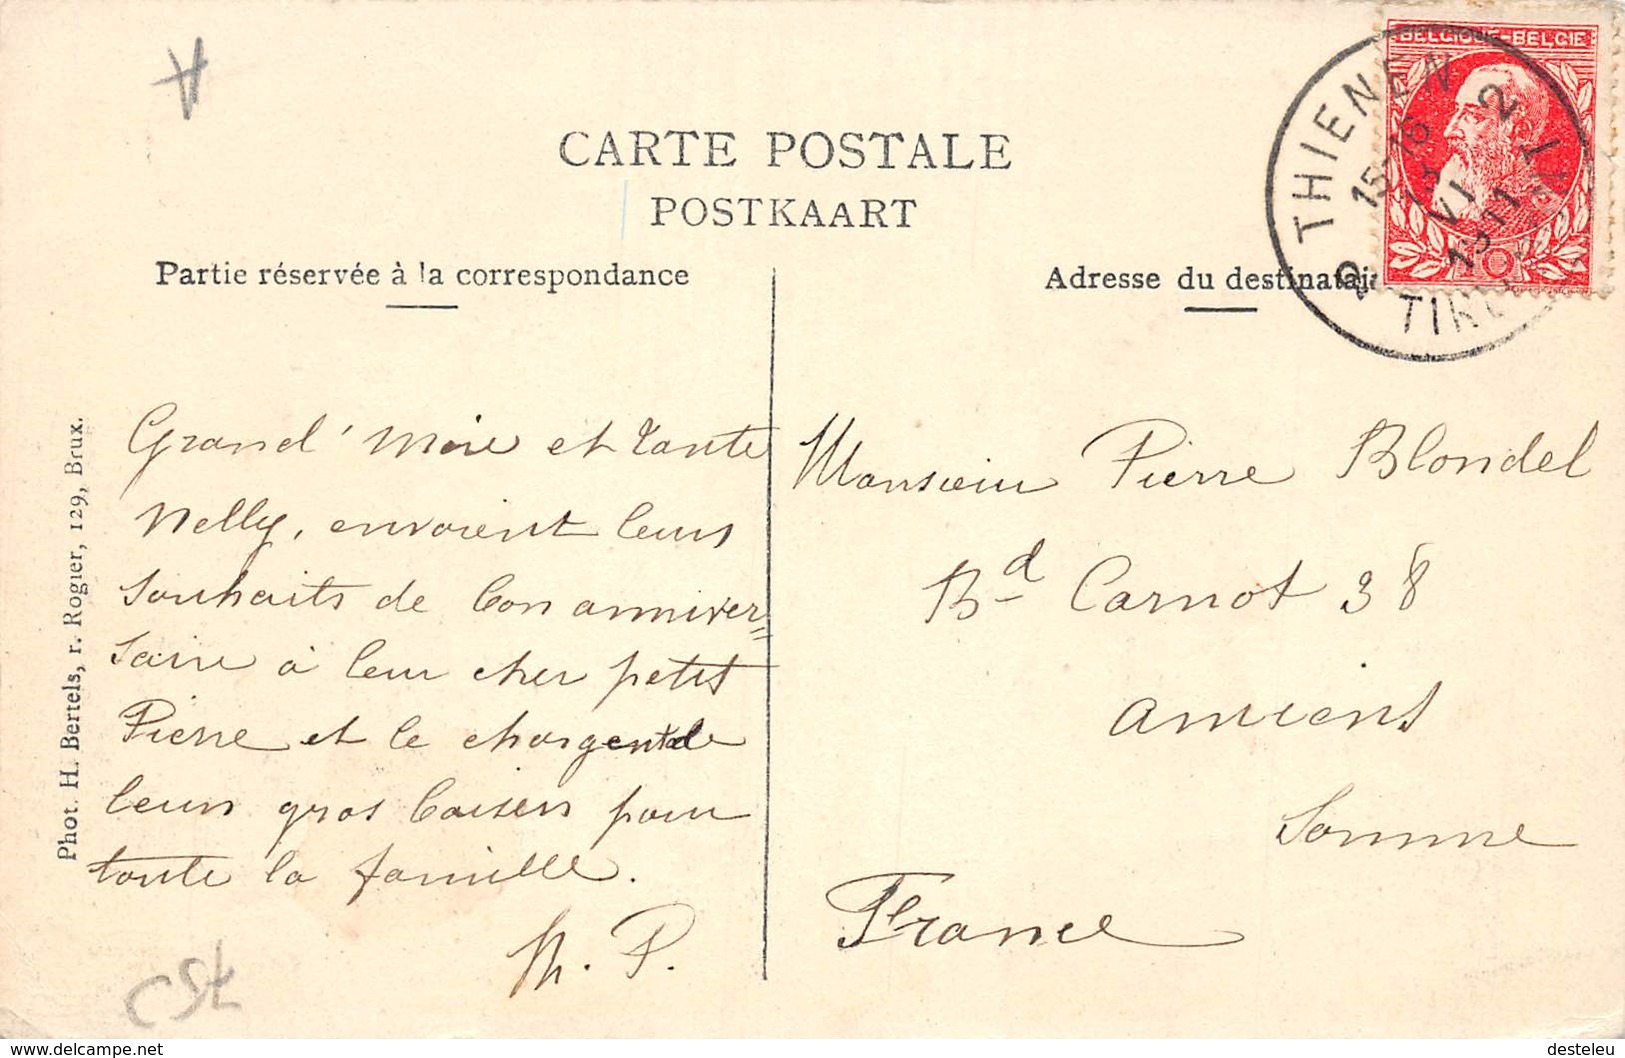 CARTE POSTALE
POSTKAART
Partie réservée à la correspondance
Adresse du destinatai
BELGIQUE-BELGIE
THIENEN 2
15-16
VI
1911
TIRLEMONT 2
Phot. H. Bertels, r. Rogier, 129, Brux.
Grand' Mère et tante
Nelly, envoient leurs
souhaits de bon anniver=
saire à leur cher petit
Pierre et le chargent de
leurs gros baisers pour
toute la famille.
M. P.
Monsieur Pierre Blondel
Bd Carnot 38
Amiens
Somme
France
www.delcampe.net
desteleu